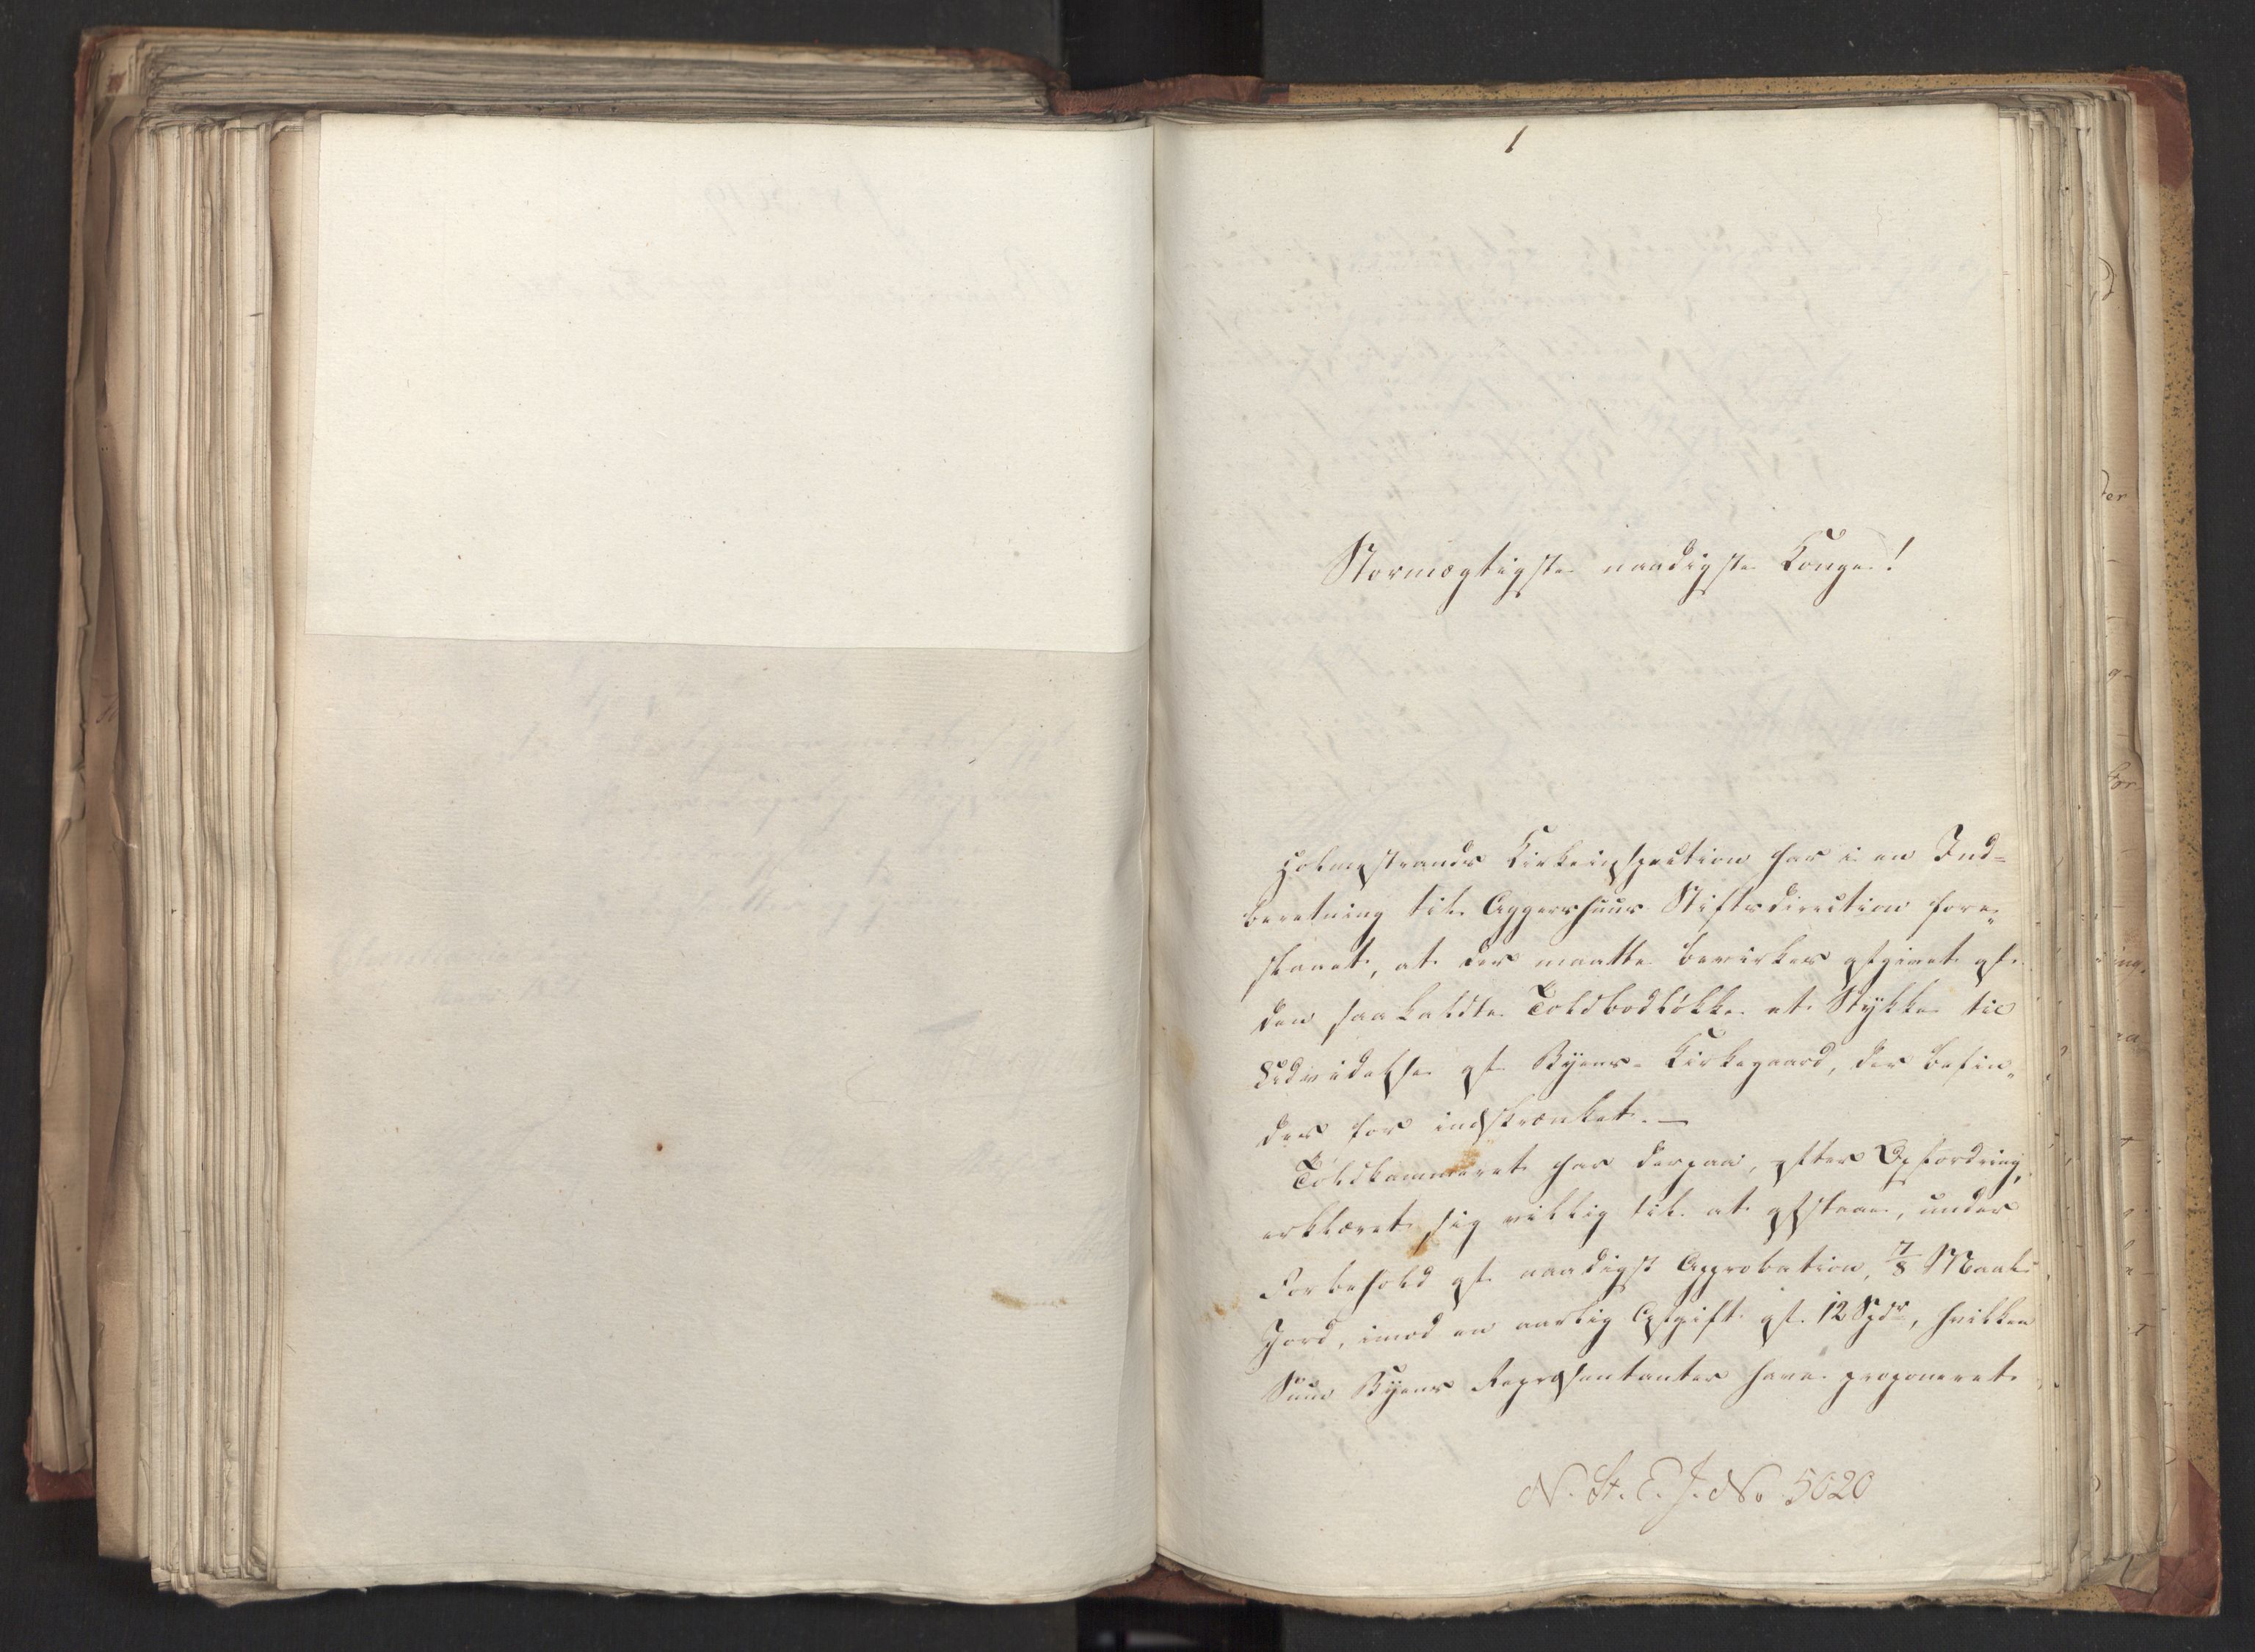 1
Stormægtigste naadigste Konge!
Holmestrands Kirkeinspection har i en Ind=
beretning til Aggershuus Stiftsdirection fore„
slaaet, at der maatte bevirkes afgivet af
den saakaldte Toldbodløkke et Stykke til
Udvidelse af Byens Kirkegaard, der befin„
des for indskrænket. —
Toldkammeret har derpaa, efter Opfordring,
erklæret sig villig til at afstaae, under
Forbehold af naadigst Approbation, 7/8 Maal
Jord, imod en aarlig Afgift af 12 Spdr, hvilken
Sum Byens Repræsentanter have proponeret
N. St. E. J. No 5020